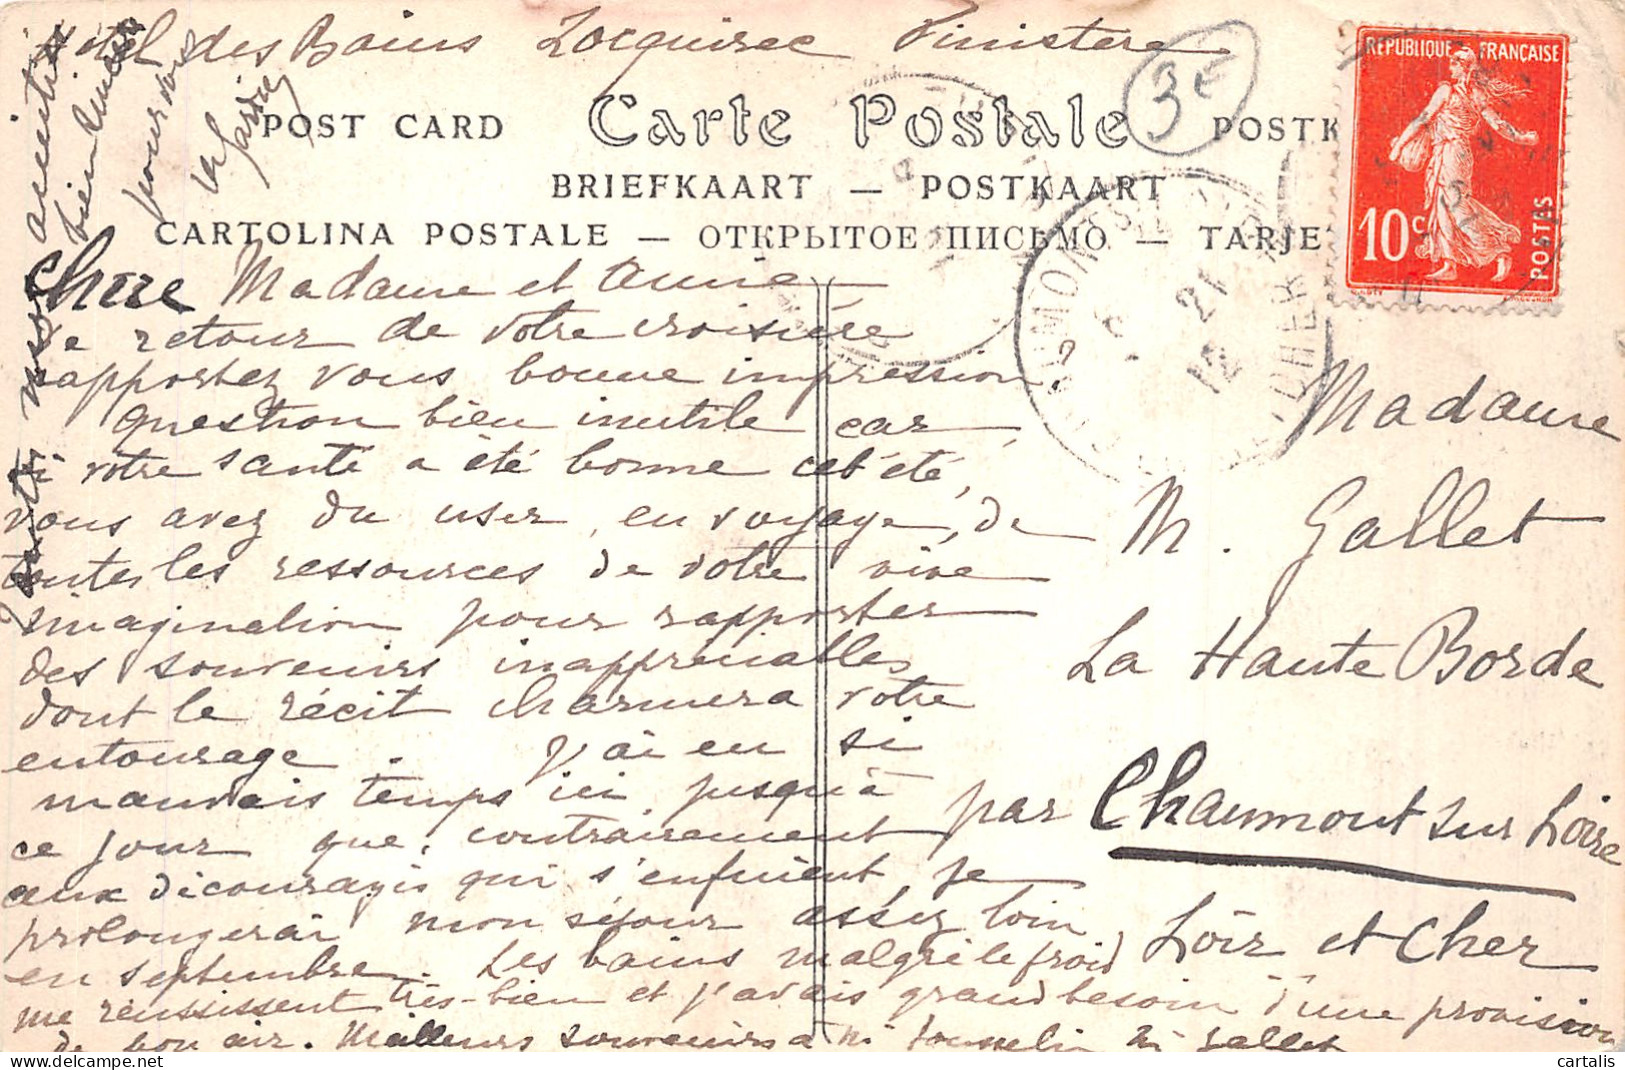 Hôtel des Bains Locquirec Finistere
3€
REPUBLIQUE FRANÇAISE
10 c
POSTES
POST CARD Carte Postale POSTK
BRIEFKAART — POSTKAART
CARTOLINA POSTALE — ОТКРЫТОЕ ПИСЬМО — TARJE
CHAUMONT-S-
21
12
ET-CHER
Chère Madame et Amie
Le retour de votre croisière
rapportez vous bonne impression
question bien inutile car,
si votre santé a été bonne cet été,
vous avez du user, en voyage, de
toutes les ressources de votre vive
imagination pour rapporter
des souvenirs inappréciables
dont le récit charmera votre
entourage. J'ai eu si
mauvais temps ici jusqu'à
ce jour que, contrairement
aux découragés qui s'enfuient, je
prolongerai mon séjour assez loin
en septembre. Les bains malgré le froid
me réussissent très-bien et j'avais grand besoin d'une provision
de bon air. Meilleurs souvenirs à Mr Gallet
amitiés
bien
pour vous
Madame
M. Gallet
La Haute Borde
par Chaumont sur Loire
Loir et Cher
cartalis